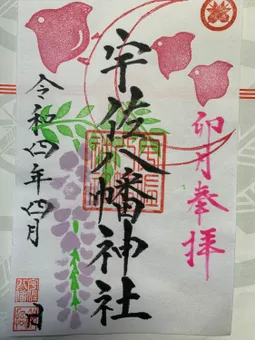 卯月奉拝
宇佐八幡神社
令和四年四月 日